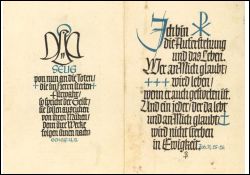 SELIG
von nun an die Toten/
die im Herrn sterben
Fürwahr/
so spricht der Geist/
sie sollen ausruhen
von ihren Mühen/
denn ihre Werke
folgen ihnen nach
Ich bin
die Auferstehung
und das Leben.
Wer an Mich glaubt
wird leben/
wenn er auch gestorben ist.
Und ein jeder/der da lebt
und an Mich glaubt
wird nicht sterben
in Ewigkeit.